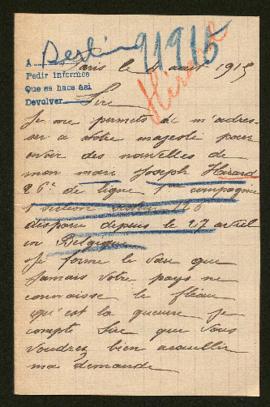 A Berlin 91915
Pedir informes
Que se hace así
Devolver
Hirard
Paris le 1 août 1915
Sire
Je me permets de m'adres-
ser a votre majesté pour
avoir des nouvelles de
mon mari Joseph Hirard
26e de ligne 1re compagnie
disparu depuis le 27 avril
en Belgique
Je forme le vœu que
jamais votre pays ne
connaisse le fléau
qu'est la guerre je
compte Sire que vous
voudrez bien accueillir
ma demande